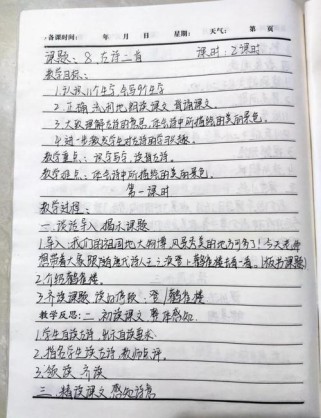 备课时间： 年 月 日 星期： 天气： 第 页
课题：8. 古诗二首 课时：2课时
教学目标：
1. 认识11个生字 会写9个字
2. 正确 流利地朗读课文 背诵课文。
3. 大致理解古诗的意思，体会诗中所描绘的美丽景色。
4. 进一步激发学生对古诗的学习兴趣。
教学重点：识字写字，读背古诗。
教学难点：体会诗中所描绘的美丽景色。
第一课时
教学过程：
一. 谈话导入 揭示课题
1. 导入：我们的祖国地大物博，风景秀美的地方可多了！今天老师
想带着大家跟随唐代诗人王之涣登上鹳雀楼去看一看。（板书课题）
2. 介绍鹳雀楼。
3. 齐读课题 读好停顿，登|鹳雀楼
教学反思：二. 初读课文 整体感知
1. 学生自读古诗，出示自读要求
2. 指名学生读古诗 教师点评。
3. 领读 齐读
三. 精读课文 感知诗意